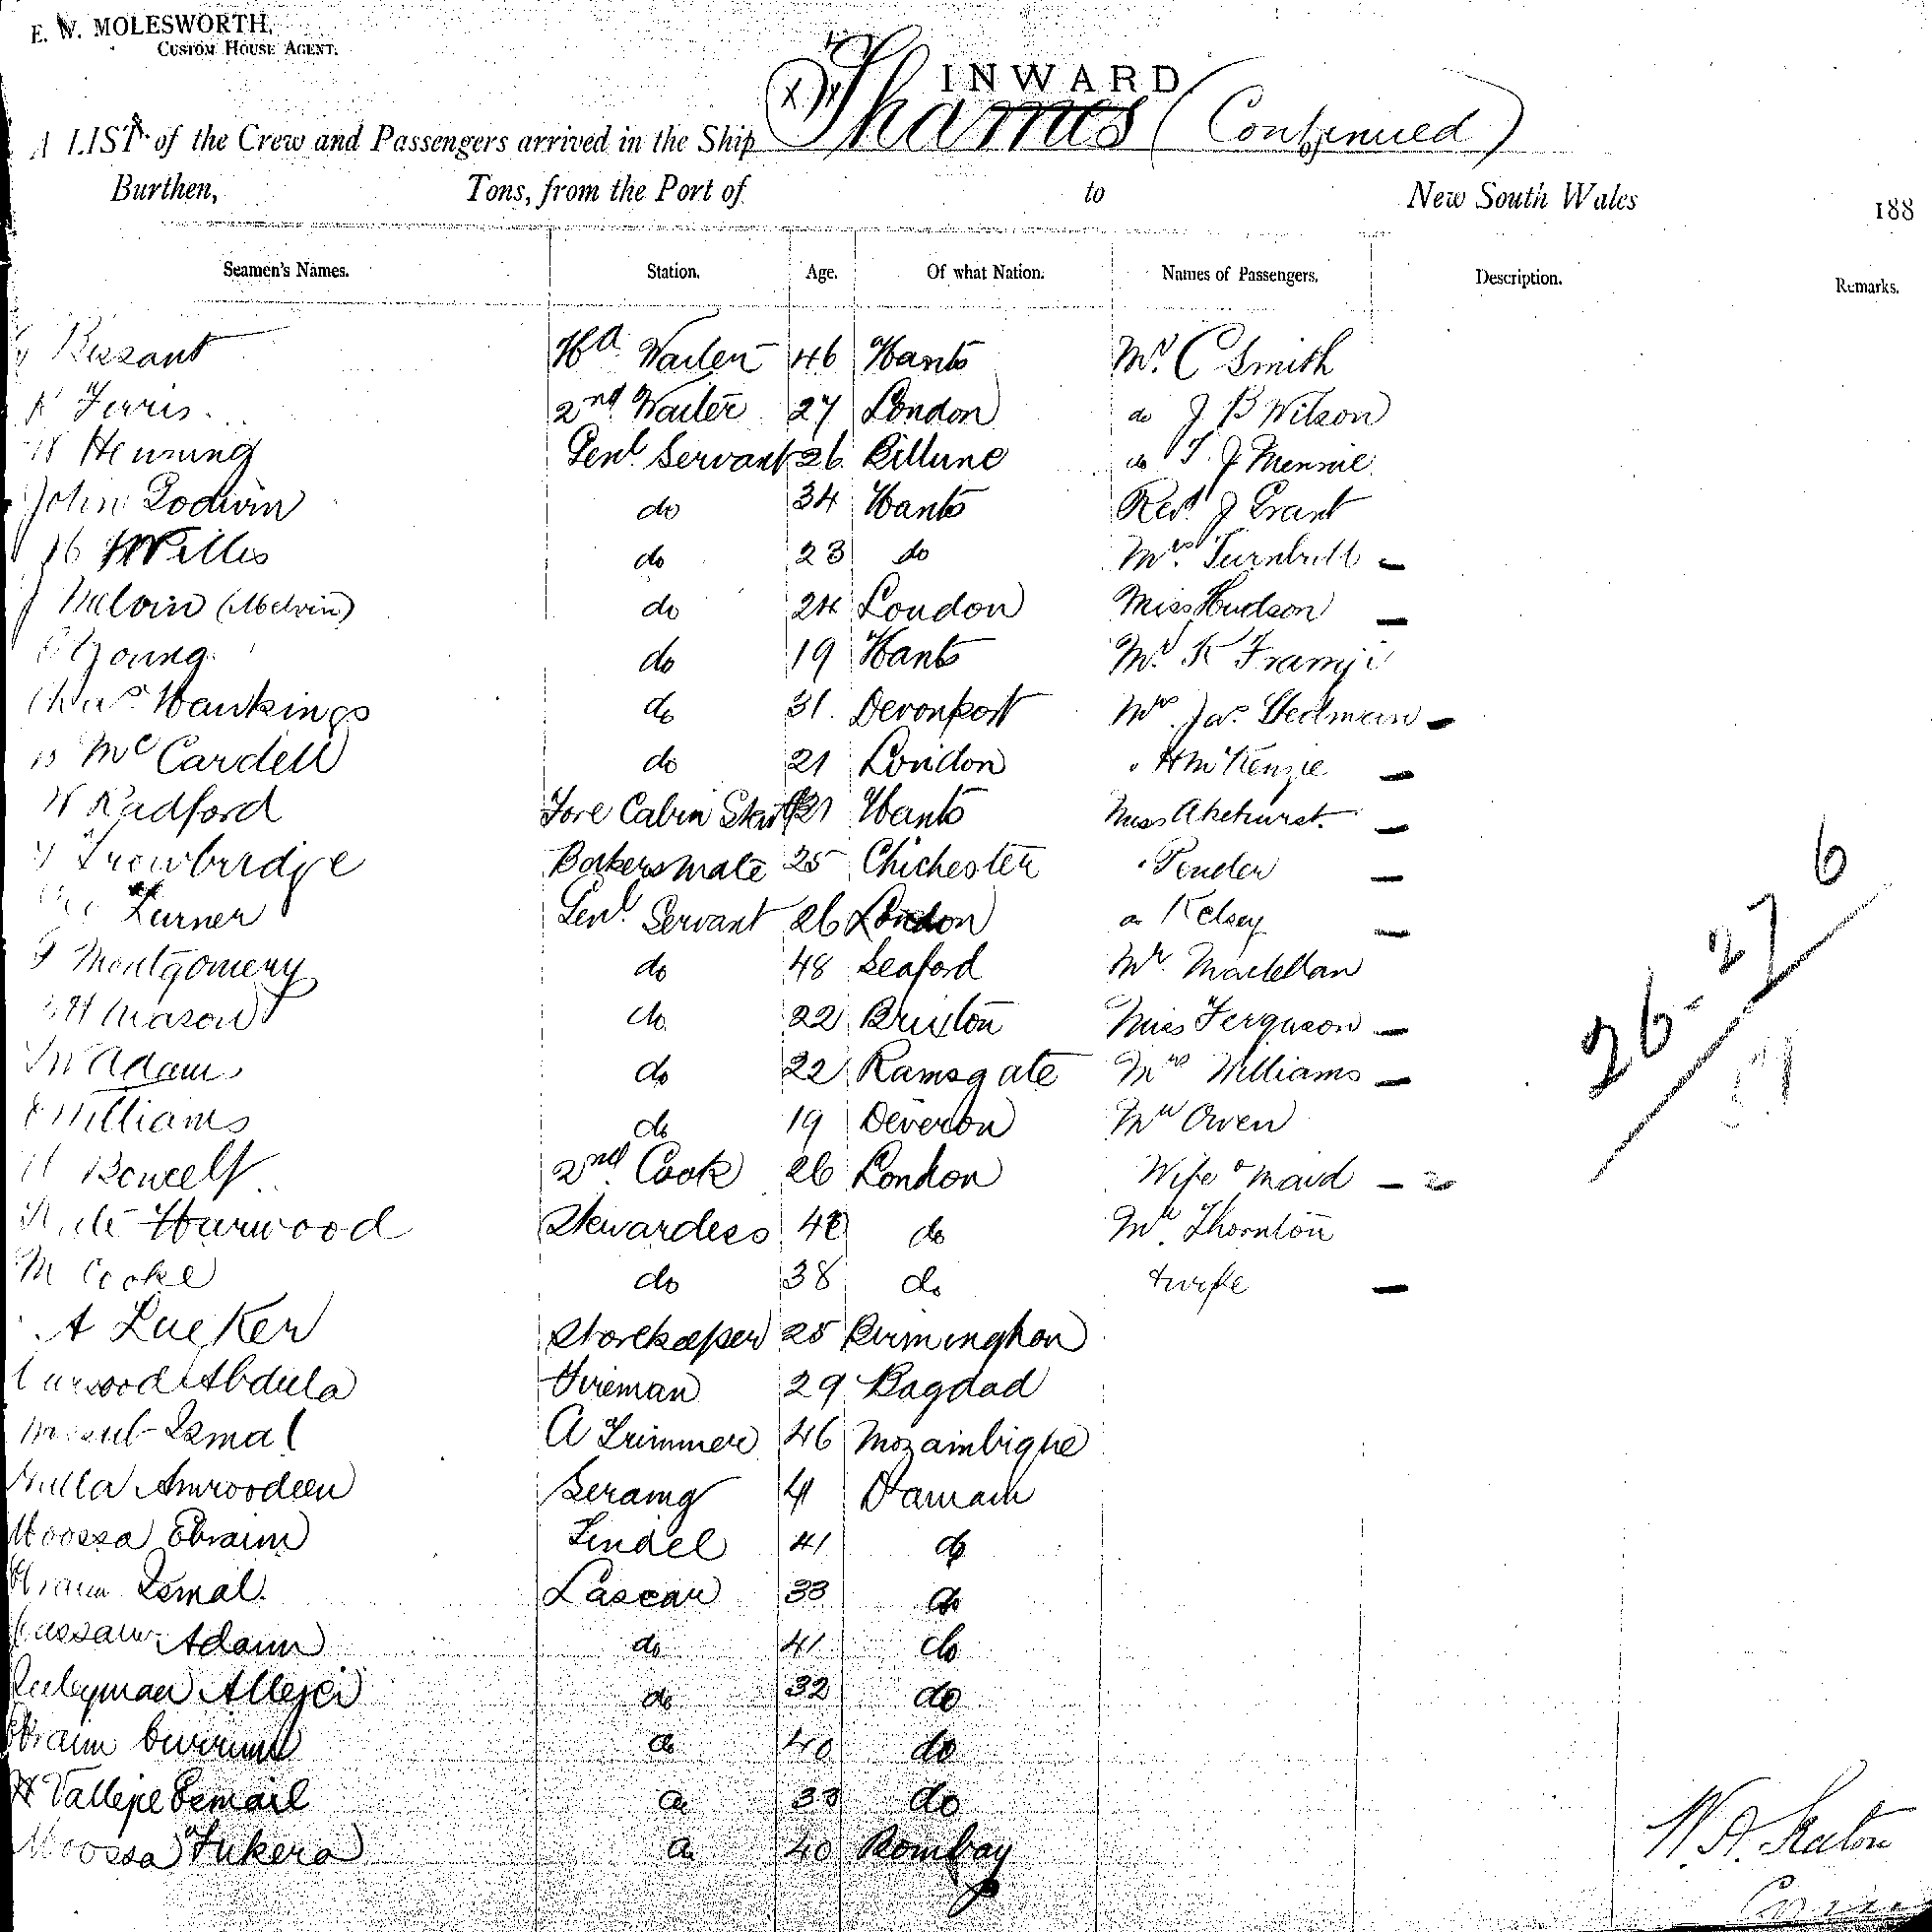 E. W. MOLESWORTH,
CUSTOM HOUSE AGENT.
INWARD
A LIST of the Crew and Passengers arrived in the Ship Thames (Continued)
of
Burthen, Tons, from the Port of to New South Wales 188
Seamen's Names. Station. Age. Of what Nation. Names of Passengers. Description. Remarks.
Bezzant Waiter 46 Hants Mr. C Smith
Ferris 2nd Waiter 27 London do J B Wilson
Henning Genl. Servant 26 do T. J Mennie
John Godwin do 34 Hants Revd J Grant
Willis do 23 do Mrs. Turnbull
J Melvin (Melvin) do 24 London Miss Hudson
Young do 19 Hants Mr. K Framji
Chas. Hawkings do 31 Devonport Mrs. Jas. Stedman
McCardell do 21 London H McKenzie
W Radford Fore Cabin 21 Hants Miss Akehurst
Trowbridge Bakers Mate 25 Chichester Pender
Turner Genl. Servant 26 London do Kelsey
Montgomery do 48 Seaford Mr. Maclellan
Mason do 22 Brixton Miss Ferguson
Adam do 22 Ramsgate Mrs Williams
Williams do 19 Deveron Mr Owen
2nd Cook 26 London Wife & Maid - 2
Harwood Stewardess do Mr. Thornton
M Cooke do 38 do & wife
A Tucker Storekeeper 25 Birmingham
Abdula Fireman 29 Bagdad
Ismal A Trimmer 46 Mozambique
Mulla Amroodeen Serang 41 Damam
Moossa Ebraim Tindel 41 do
Ismal Lascar 33 do
Hassam Adam do 41 do
Suleyman Alleyei do 32 do
Ebraim do 40 do
Vallejee Esmail do 33 do
Moossa Fukera do 40 Bombay
26-27
6
W. A. Seaton